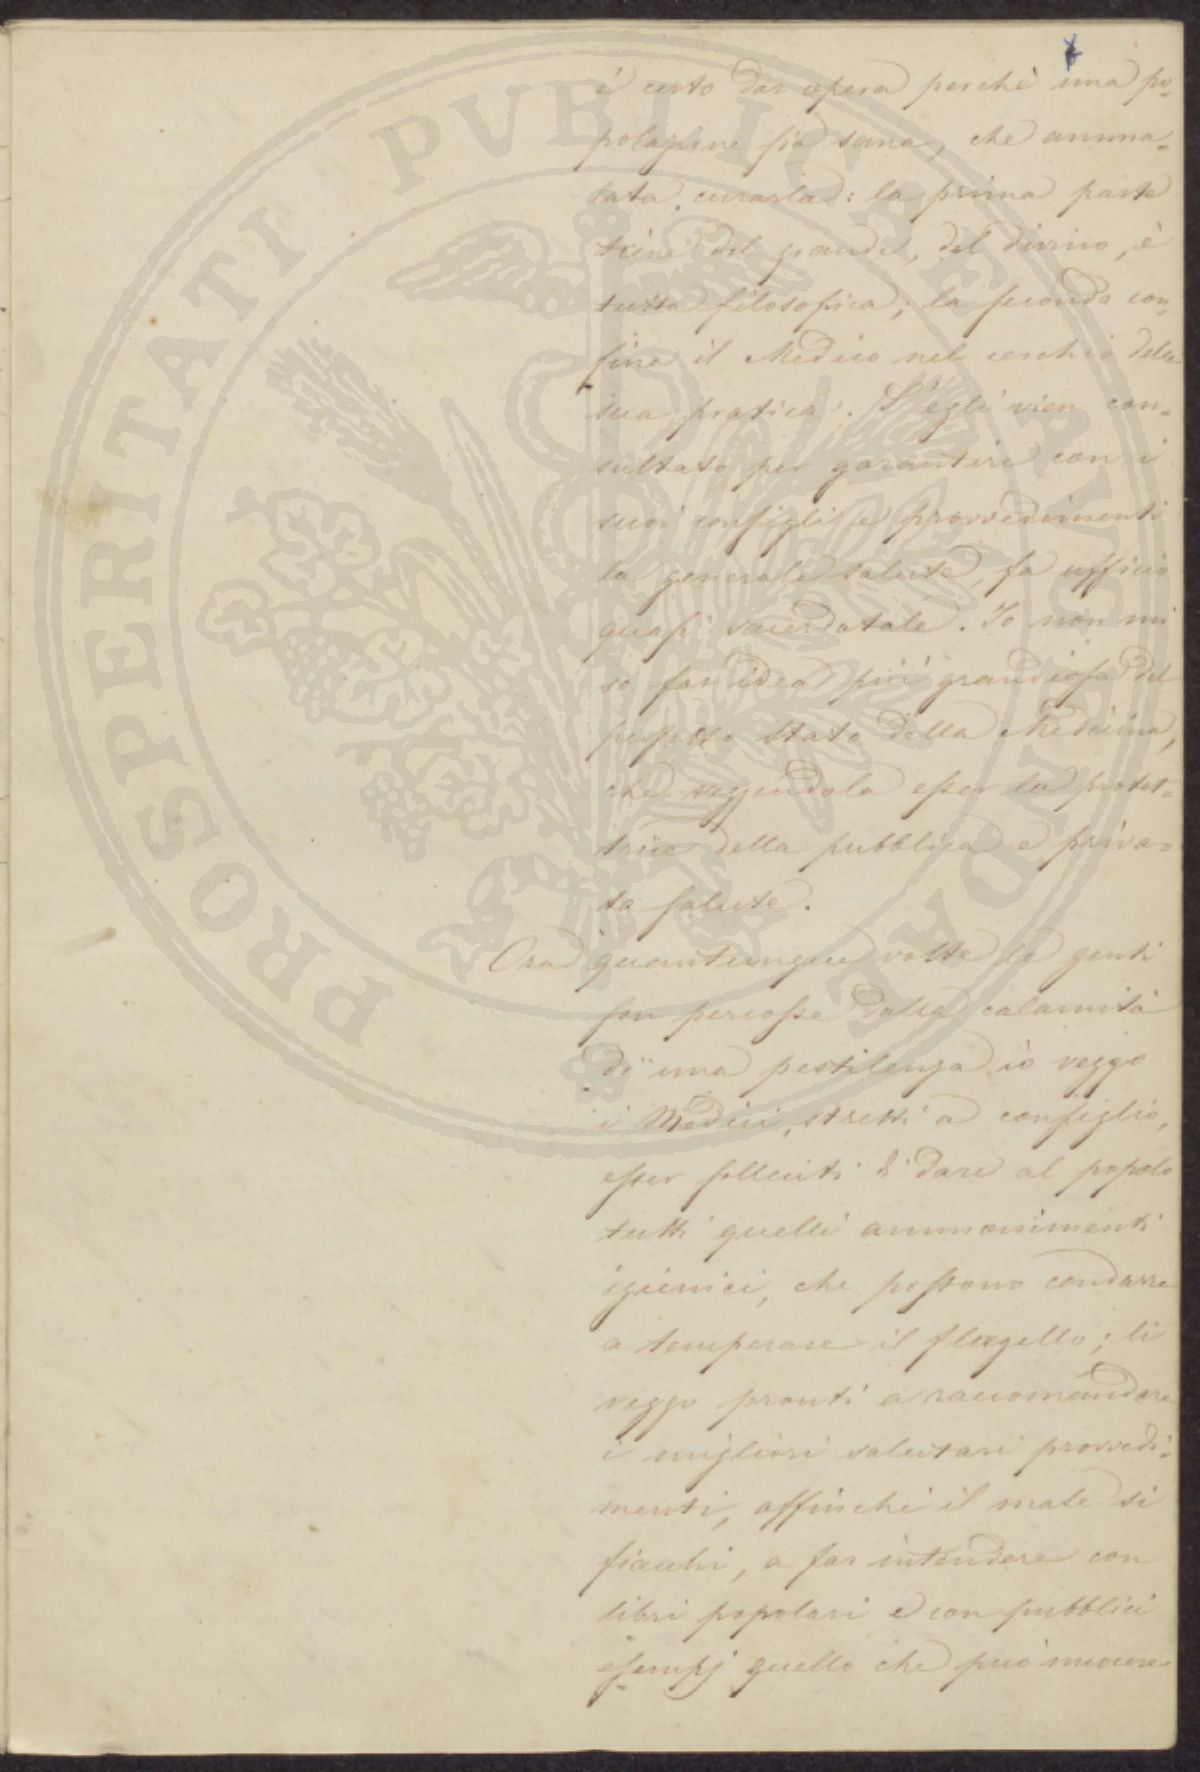 è certo dar opera perchè una po-
polazione sia sana, che amma-
lata curarla: la prima parte
tiene del grande, del divino, è
tutta filosofica; la seconda con-
fina il Medico nel cerchio della
sua pratica. S'egli vien con-
sultato per garantire con i
suoi consigli e provvedimenti
la generale salute, fa ufficio
quasi sacerdotale. Io non mi
so far idea più grandiosa del
perfetto stato della Medicina,
che veggendola esser la protet-
trice della pubblica e priva-
ta salute.
Ora quantunque volte le genti
son percosse dalla calamità
di una pestilenza io veggo
i Medici, stretti a consiglio,
esser solleciti di dare al popolo
tutti quelli ammonimenti
igienici, che possono condurre
a temperare il flagello; li
veggo pronti a raccomandare
i migliori salutari provvedi-
menti, affinchè il male si
fiacchi, a far intendere con
libri popolari e con pubblici
esempj quello che può nuocere
PROSPERITATI PUBLICAE AUGENDAE